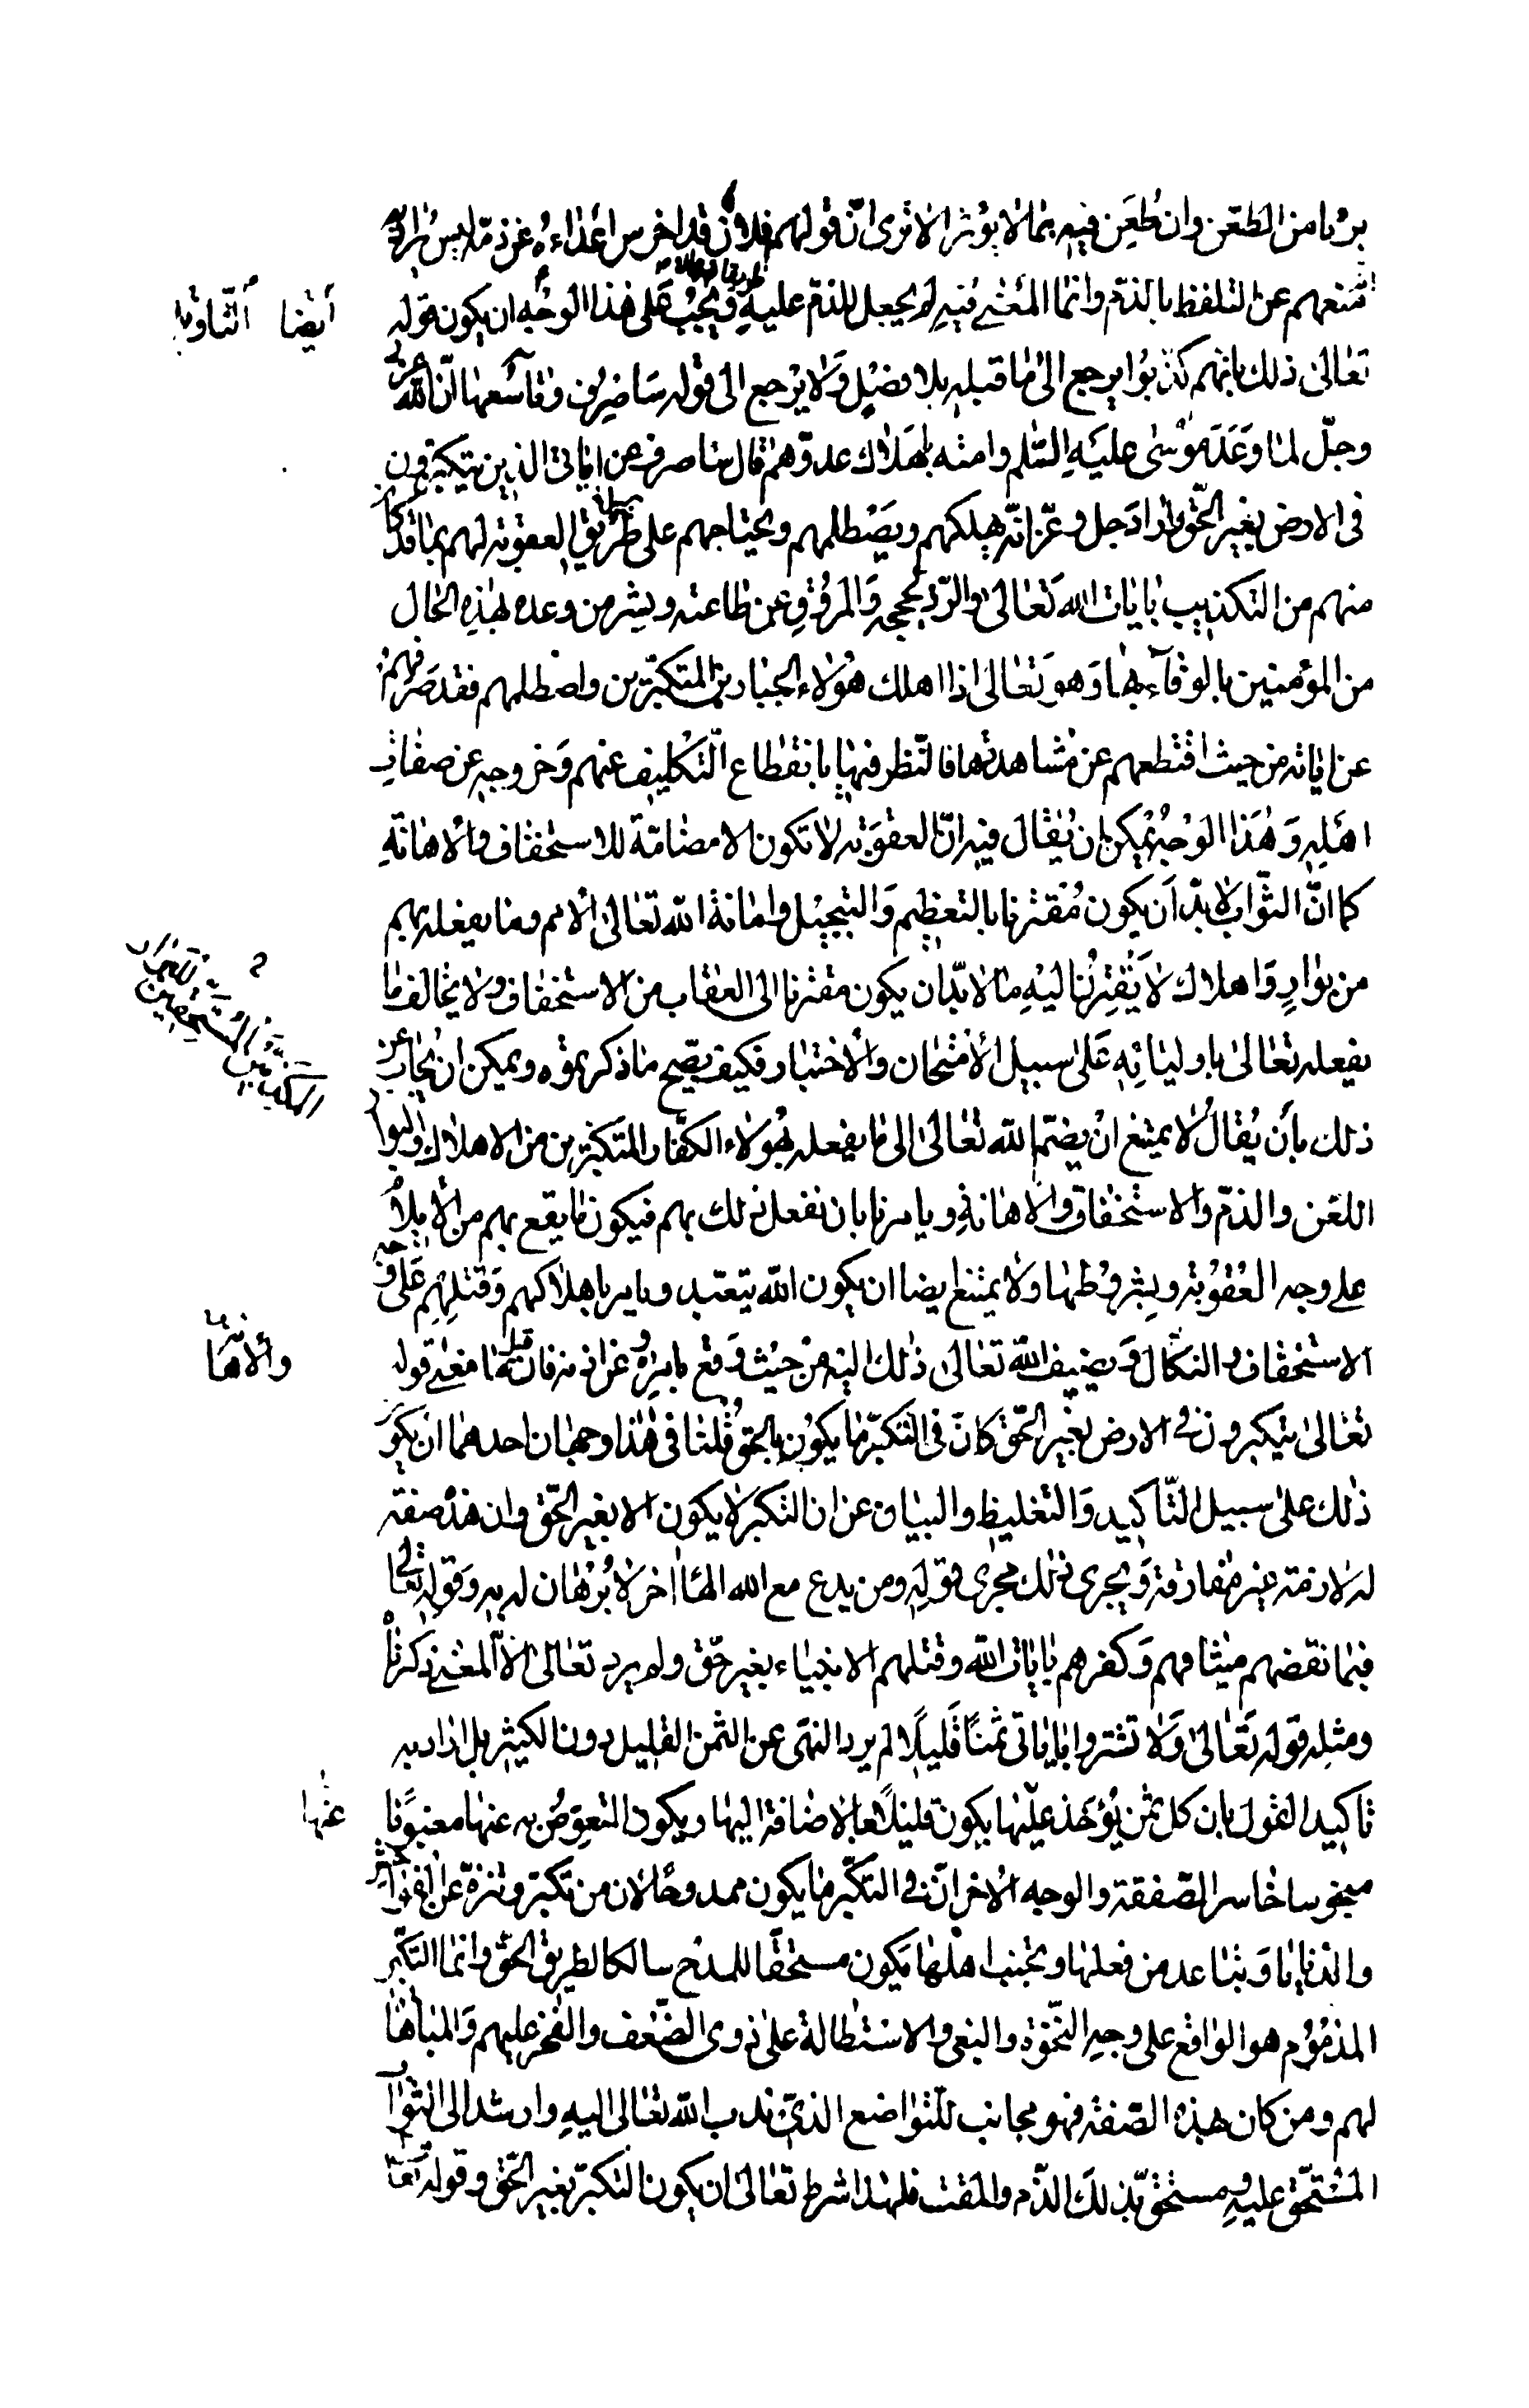 بريا من الطعن وان طعن فيه بما لا يؤثر الا ترى ان قولهم فلان قد اخرس اعداءه عن ذمه ليس يراد به
انه منعهم عن التلفظ بالذم وانما المعنى فيه لم يجعل للذم عليه طريقا ويجب على هذا الوجه ان يكون قوله
ايضا
تعالى ذلك بانهم كذبوا يرجع الى ما قبله بلا فصل ولا يرجع الى قوله ساصرف وتاسعها ان الله عز
وجل لما وعد موسى عليه السلم وامته باهلاك عدوهم قال ساصرف عن اياتى الذين يتكبرون
فى الارض بغير الحق واراد جل وعز انه يهلكهم ويصطلمهم ويجتاحهم على طريق العقوبة لهم بما قد كان
منهم من التكذيب بايات الله تعالى والرد لحججه والمروق عن طاعته وبشر من وعده بهذه الحال
من المؤمنين بالوفاء بها وهو تعالى اذا اهلك هؤلاء الجبارين المتكبرين واصطلمهم فقد صرفهم
عن اياته من حيث اقتطعهم عن مشاهدتها والنظر فيها بانقطاع التكليف عنهم وخروجه عن صفات
اهله وهذا الوجه يمكن ان يقال فيه ان العقوبة لا تكون الا مضامة للاستخفاف والاهانة
كما ان الثواب لا بد ان يكون مقترنا بالتعظيم والتبجيل واماتة الله تعالى الامم وما يفعله بهم
من بوار واهلاك لا يقترن اليه ما لا بد ان يكون مقترنا الى العقاب من الاستخفاف ولا يخالف ما
يفعله تعالى باوليائه على سبيل الامتحان والاختبار فكيف يصح ما ذكرتموه ويمكن ان يجاب عن
ذلك بان يقال لا يمتنع ان يضم الله تعالى الى ما يفعله بهؤلاء الكفار المتكبرين من الاهلاك والبوار
اللعن والذم والاستخفاف والاهانة ويامرنا بان نفعل ذلك بهم فيكون ما يقع بهم من الايلام
على وجه العقوبة وبشروطها ولا يمتنع ايضا ان يكون الله يتعبد ويامر باهلاكهم وقتلهم على وجه
الاستخفاف والنكال ويضيف الله تعالى ذلك اليه من حيث وقع بامره وعن اذنه فان قيل ما معنى قوله
والاهانة
تعالى يتكبرون فى الارض بغير الحق كان فى التكبر ما يكون بالحق قلنا فى هذا وجهان احدهما ان يكون
ذلك على سبيل التاكيد والتغليظ والبيان عن ان التكبر لا يكون الا بغير الحق وان هذه صفته
له لازمة غير مفارقة ويجرى ذلك مجرى قوله ومن يدع مع الله الها اخر لا برهان له به وقوله تعالى
فبما نقضهم ميثاقهم وكفرهم بايات الله وقتلهم الانبياء بغير حق ولم يرد تعالى الا المعنى ذكرناه
ومثله قوله تعالى ولا تشتروا باياتى ثمنا قليلا لم يرد النهى عن الثمن القليل دون الكثير بل اراد به
تاكيد القول بان كل ثمن يؤخذ عليها يكون قليلا بالاضافة اليها ويكون المتعوض به عنها مغبونا
عنها
مبخوسا خاسر الصفقة والوجه الاخر ان فى التكبر ما يكون ممدوحا لان من تكبر وتنزه عن الفواحش
والدنايا وتباعد من فعلها وتجنب اهلها يكون مستحقا للمدح سالكا لطريق الحق وانما التكبر
المذموم هو الواقع على وجه النخوة والبغى والاستطالة على ذوى الضعف والفخر عليهم والمباهاة
لهم ومن كان بهذه الصفة فهو مجانب للتواضع الذى ندب الله تعالى اليه وارشد الى الثواب
المستحق عليه ومستحق بذلك الذم والمقت فلهذا شرط تعالى ان يكون التكبر بغير الحق وقوله تعالى